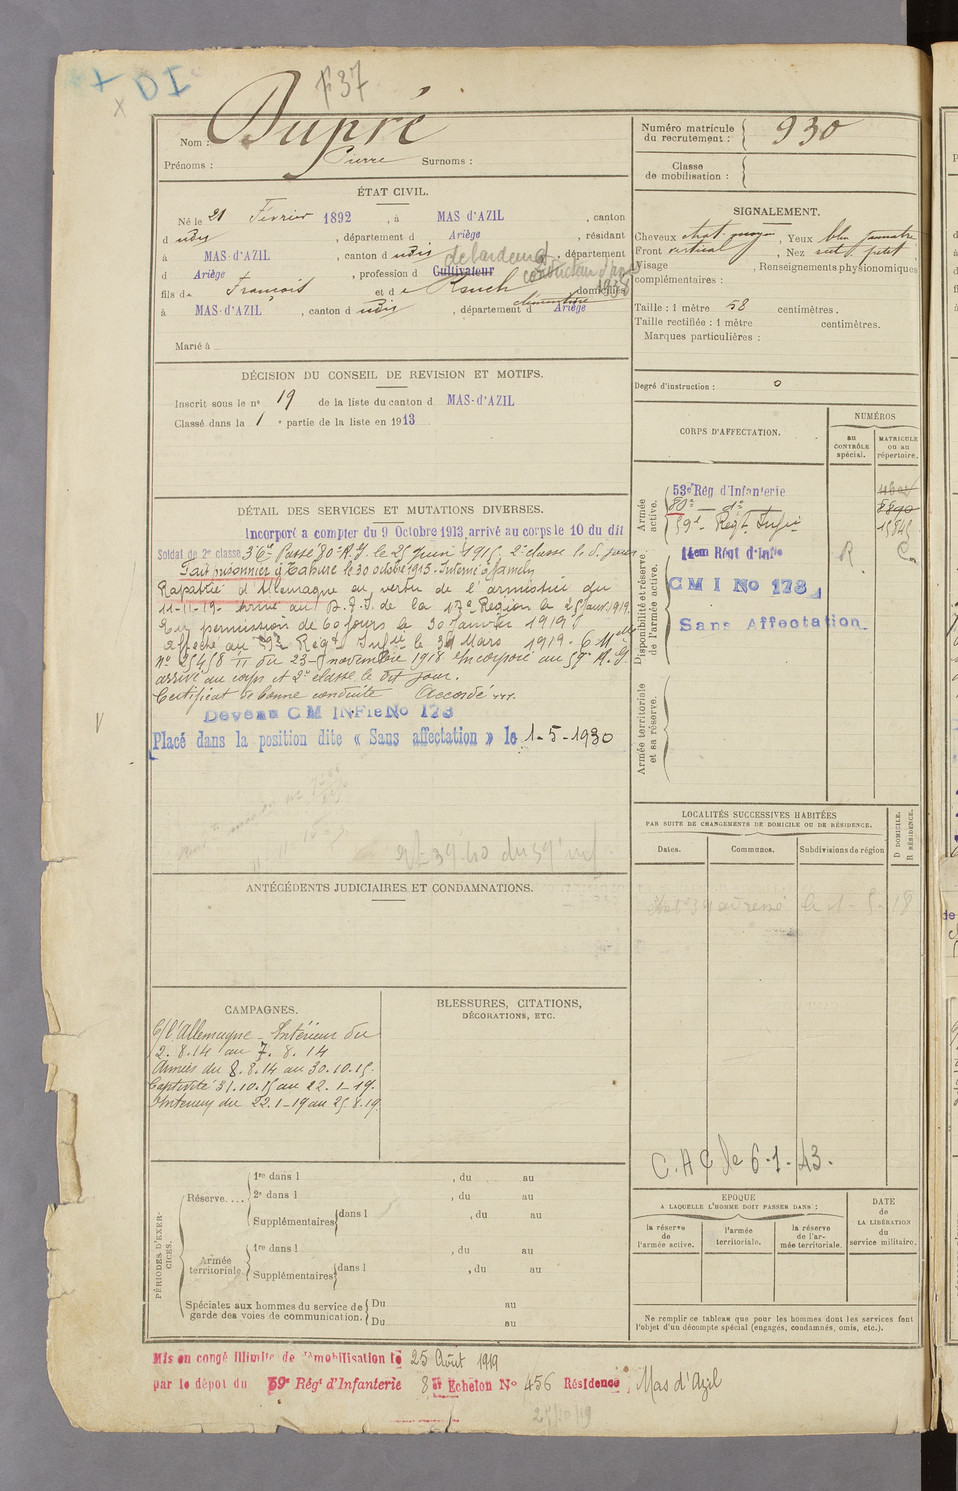 + DI
x
F 37
Nom : Dupré
Prénoms : Pierre Surnoms :
Numéro matricule du recrutement : 930
Classe de mobilisation :
ÉTAT CIVIL.
Né le 21 Février 1892, à MAS d'AZIL, canton
d udis, département d Ariège, résidant
à MAS-d'AZIL, canton d udis, département
d Ariège, profession d Cultivateur
1938
fils de François et de domiciliés
à MAS-d'AZIL, canton d udis, département d Ariège
Marié à
SIGNALEMENT.
Cheveux chat. moyen, Yeux bleu
Front vertical, Nez rect. petit,
Visage , Renseignements physionomiques
complémentaires :
Taille : 1 mètre 58 centimètres.
Taille rectifiée : 1 mètre centimètres.
Marques particulières :
Degré d'instruction : 0
DÉCISION DU CONSEIL DE REVISION ET MOTIFS.
Inscrit sous le no 19 de la liste du canton d MAS-d'AZIL
Classé dans la 1e partie de la liste en 1913
DÉTAIL DES SERVICES ET MUTATIONS DIVERSES.
Incorporé a compter du 9 Octobre 1913 arrivé au corps le 10 du dit
Soldat de 2e classe Passé 80e R.I. le 25 juin 1915, 2e classe le d. jour
Fait prisonnier à Tahure le 30 octobre 1915. Interné à
Rapatrié d'Allemagne en vertu de l'armistice du
11-11-19- arrivé au de la 17e Région le 25 janv. 1919
permission de 60 jours le 30 Janvier 1919
affecté au Régt Infie le Mars 1919 -
No II du 23- novembre 1918 Incorporé au 59e R.I.
arrivé au corps et 2e classe le dit jour.
Certificat de bonne conduite Accordé
Devenu C M INFie No 173
Placé dans la position dite « Sans affectation » le 1-5-1930
du 59e inf
CORPS D'AFFECTATION.
NUMÉROS
au CONTRÔLE spécial.
MATRICULE ou au répertoire.
Armée active.
53e Rég. d'Infanterie
80e - do
59e - Régt Infie
Disponibilité et réserve de l'armée active.
14em Régt d'Infie
R
C M I No 173
Sans Affectation
Armée territoriale et sa réserve.
LOCALITÉS SUCCESSIVES HABITÉES
PAR SUITE DE CHANGEMENTS DE DOMICILE OU DE RÉSIDENCE.
D DOMICILE.
R RÉSIDENCE.
Dates.
Communes.
Subdivisions de région
C.A.C le 6-1-43.
ANTÉCÉDENTS JUDICIAIRES ET CONDAMNATIONS.
CAMPAGNES.
C/ l'Allemagne - Intérieur du
2.8.14 au 7.8.14
Armées du 8.8.14 au 30.10.15.
Captivité 31.10.15 au 22.1-19.
Intérieur du 22.1-19 au 25.8.19
BLESSURES, CITATIONS,
DÉCORATIONS, ETC.
PÉRIODES D'EXERCICES.
Réserve....
1re dans l , du au
2e dans l , du au
Supplémentaires dans l , du au
Armée territoriale
1re dans l , du au
Supplémentaires dans l , du au
Spéciales aux hommes du service de
garde des voies de communication.
Du au
Du au
EPOQUE
A LAQUELLE L'HOMME DOIT PASSER DANS :
la réserve de l'armée active.
l'armée territoriale.
la réserve de l'armée territoriale.
DATE
de
LA LIBÉRATION
du
service militaire.
Ne remplir ce tableau que pour les hommes dont les services font
l'objet d'un décompte spécial (engagés, condamnés, omis, etc.).
Mis en congé illimité de démobilisation le 25 Août 1919
par le dépot du 59e Régt d'Infanterie 8e Echelon No 456 Résidence : Mas d'Azil